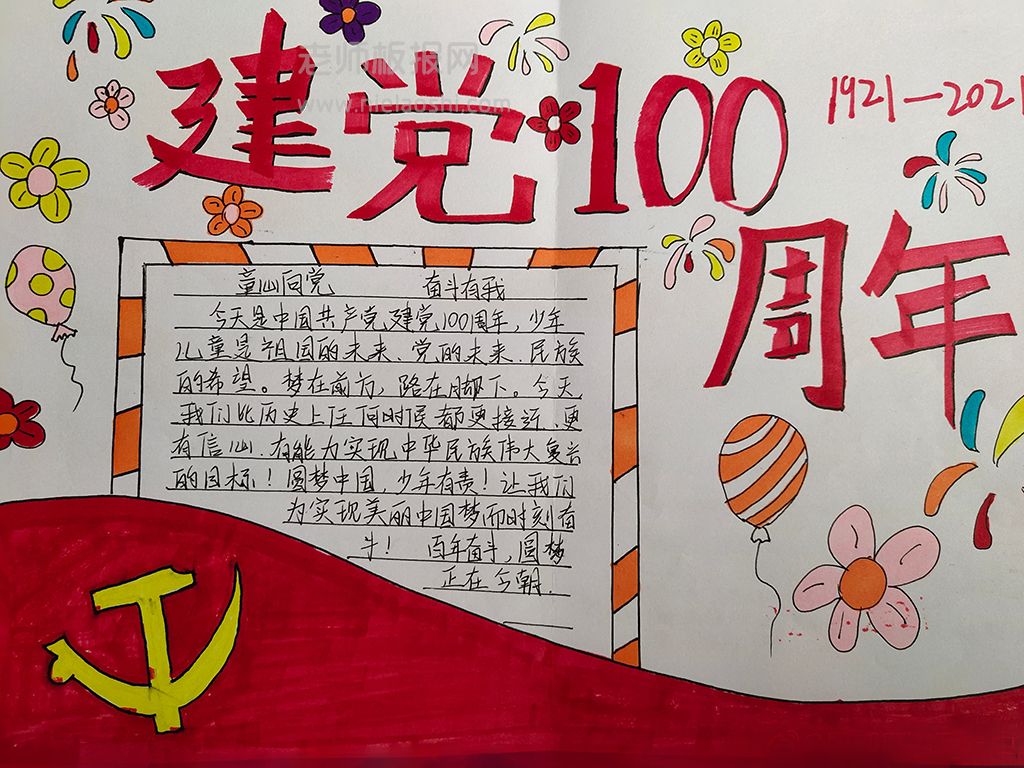 老师板报网
建党100
1921—2021
周年
童心向党 奋斗有我
今天是中国共产党建党100周年，少年
儿童是祖国的未来、党的未来、民族
的希望。梦在前方，路在脚下。今天
我们比历史上任何时候都更接近、更
有信心、有能力实现中华民族伟大复兴
的目标！圆梦中国，少年有责！让我们
为实现美丽中国梦而时刻奋
斗！ 百年奋斗，圆梦
正在今朝.